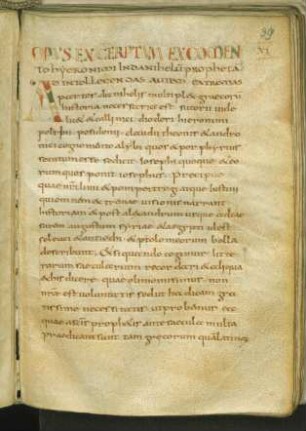 39
XI
OPUS EXCERPTUM EX CODEN
TO HYERONIMI IN DANIHELEM PROPHETA
AD INTELLEGENDAS AUTEM EXTREMAS
partes danihelis multiplex grecorum
historia necessaria est sutorii vide
licet & callinici diodori hieronimi
polybii posidonii claudii theonis & andro
nici cognomento alypii quos & porphyrius
secutum esse se dicit iosephi quoque & eo
rum quos ponit iosephus Precipue
que nostri libii & pompei trogi atque iustini
qui omnem extremae visionis narrant
historiam & post alexandrum usque ad cae
sarem augustum syriae & aegypti idest
seleuci & antiochi & ptolomeorum bella
describunt Et si quando cogimur litte
rarum secularium recordari & aliqua
ex his dicere quae olim omisimus non
nostrae est voluntatis sed ut ita dicam gra
vissimae necessitatis ut probemus ea
quae a sanctis prophetis ante saecula multa
praedicta sunt tam grecorum quam latino